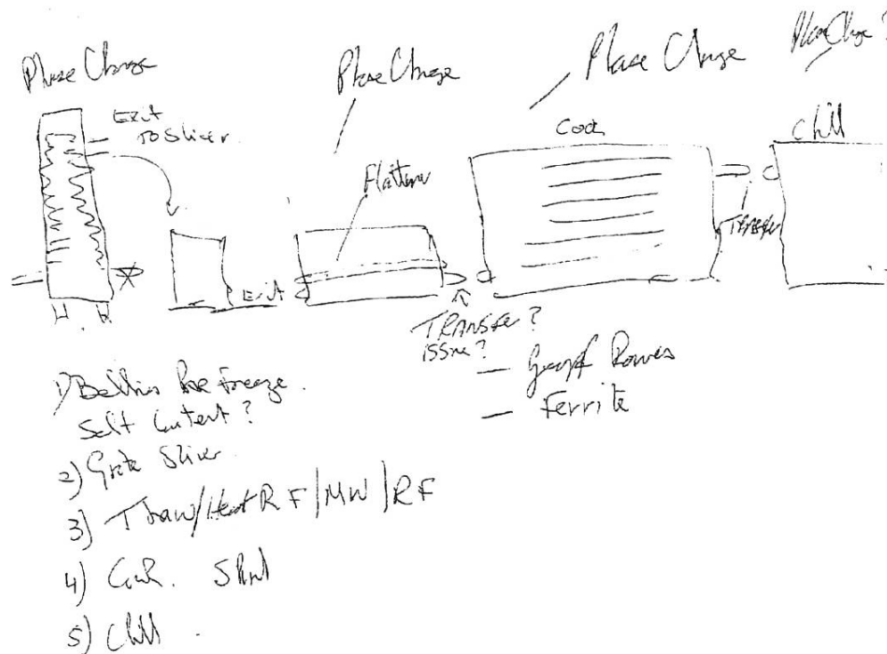 Phase Change
Phase Change
Phase Change
Phase Change?
Exit
TO Slicer
Flatten
Cook
Chill
Exit
TRANSFER?
issue?
TRANSFER
1) Bellies Pre Freeze.
Salt Content?
2) Grote Slicer
3) Thaw/Heat RF/MW/RF
4) Cook.
5) Chill.
—
— Ferrite